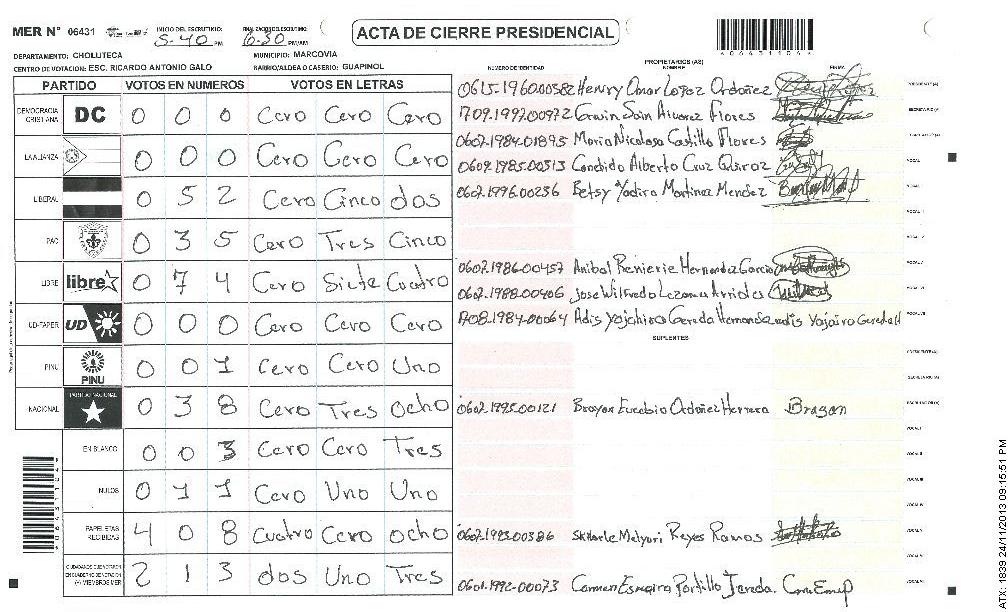 MER N° 06431
INICIO DEL ESCRUTINIO: 5-40 PM
FINALIZACION DEL ESCRUTINIO: 6:30 PM/AM
ACTA DE CIERRE PRESIDENCIAL
DEPARTAMENTO: CHOLUTECA
MUNICIPIO: MARCOVIA
CENTRO DE VOTACION: ESC. RICARDO ANTONIO GALO
BARRIO/ALDEA O CASERIO: GUAPINOL
PARTIDO VOTOS EN NUMEROS VOTOS EN LETRAS
DEMOCRACIA CRISTIANA DC 0 0 0 Cero Cero Cero
LA ALIANZA 0 0 0 Cero Cero Cero
LIBERAL 0 5 2 Cero Cinco dos
PAC 0 3 5 Cero Tres Cinco
LIBRE libre 0 7 4 Cero Siete Cuatro
UD-FAPER UD 0 0 0 Cero Cero Cero
PINU PINU 0 0 1 Cero Cero Uno
NACIONAL PARTIDO NACIONAL 0 3 8 Cero Tres Ocho
EN BLANCO 0 0 3 Cero Cero Tres
NULOS 0 1 1 Cero Uno Uno
PAPELETAS RECIBIDAS 4 0 8 Cuatro Cero ocho
CIUDADANOS QUE VOTARON EN CUADERNO DE VOTACION (+) MIEMBROS MER 2 1 3 dos Uno Tres
PROPIETARIOS (AS)
NUMERO DE IDENTIDAD NOMBRE FIRMA
0615.1960.00582 Henry Omar Lopez Ordoñez PRESIDENTE (A)
1709.1992.00972 Erwin Join Alvarez Flores SECRETARIO (A)
0602.1984.01895 Maria Nicolasa Castillo Flores
0609.1985.00313 Candido Alberto Cruz Quiroz VOCAL I
0607.1996.00236 Betsy Yadira Martinez Mendez VOCAL II
0607.1986-00457 Anibal Renierie Hernandez Garcia VOCAL V
0607.1988-00406 Jose Wilfredo Lezama Arriola VOCAL VI
1708.1984-00064 Adis Yajahira Gereda Hernandez adis Yajaira Gereda H VOCAL VII
SUPLENTES
PRESIDENTE (A)
SECRETARIO (A)
0602.1995.00121 Brayan Eucebio Ordoñez Herrera Brayan ESCRUTADOR (A)
VOCAL I
VOCAL II
VOCAL III
VOCAL IV
0602.1993.00386 Skharle Melyuri Reyes Ramos VOCAL V
VOCAL VI
0601.1992-00073 Carmen Portillo VOCAL VII
24/11/2013 09:15:51 PM